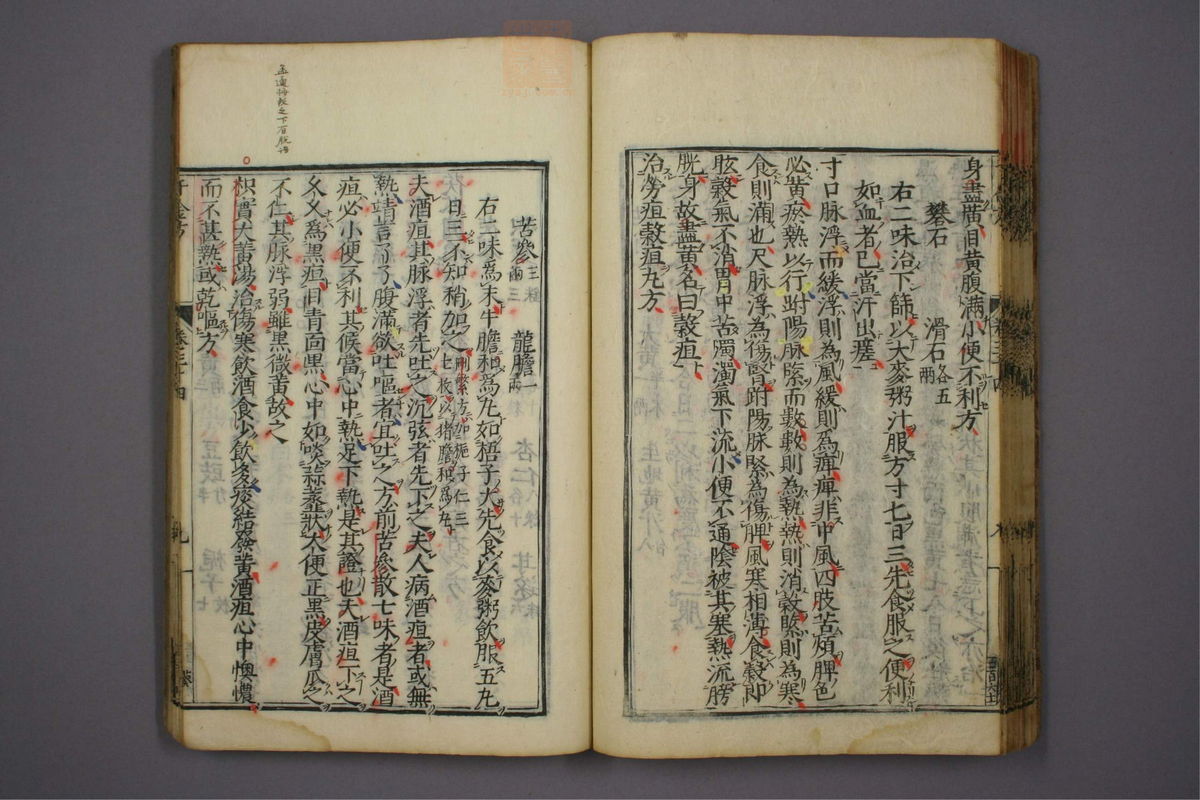 身盡黃目黃腹滿小便不利方
礬石 滑石各五兩
右二味治下篩以大麥粥汁服方寸七日三先食服之便利
如血者已當汗出瘥
寸口脉浮而緩浮則為風緩則為痺痺非中風四肢苦煩脾色
必黃瘀熱以行趺陽脉緊而數數則為熱熱則消穀緊則為寒
食則滿也尺脉浮為傷腎趺陽脉緊為傷脾風寒相薄食穀即
眩穀氣不消胃中苦濁濁氣下流小便不通陰被其寒熱流膀
胱身故盡黃名曰穀疸
治勞疸穀疸丸方
苦參三兩 龍膽一兩
右二味為末牛膽和為丸如梧子大先食以麥粥飲服五丸
日三不知稍加之刪繁方加梔子人三七枚以猪膽和為丸
夫酒疸其脉浮者先吐之沉弦者先下之夫人病酒疸者或無
熱靖言了了腹滿欲吐嘔者宜吐之方煎苦參散七味者是酒
疸必小便不利其候當心中熱足下熱是其證也夫酒疸下之
久久為黑疸目青面黑心中如啖蒜虀狀大便正黑皮膚瓜之
不仁其脉浮弱雖黑微黃故之
枳實大黃湯治傷寒飲酒食少飲多痰結發黃酒疸心中懊憹
而不甚熱或乾嘔方
千金方 卷三十四 九